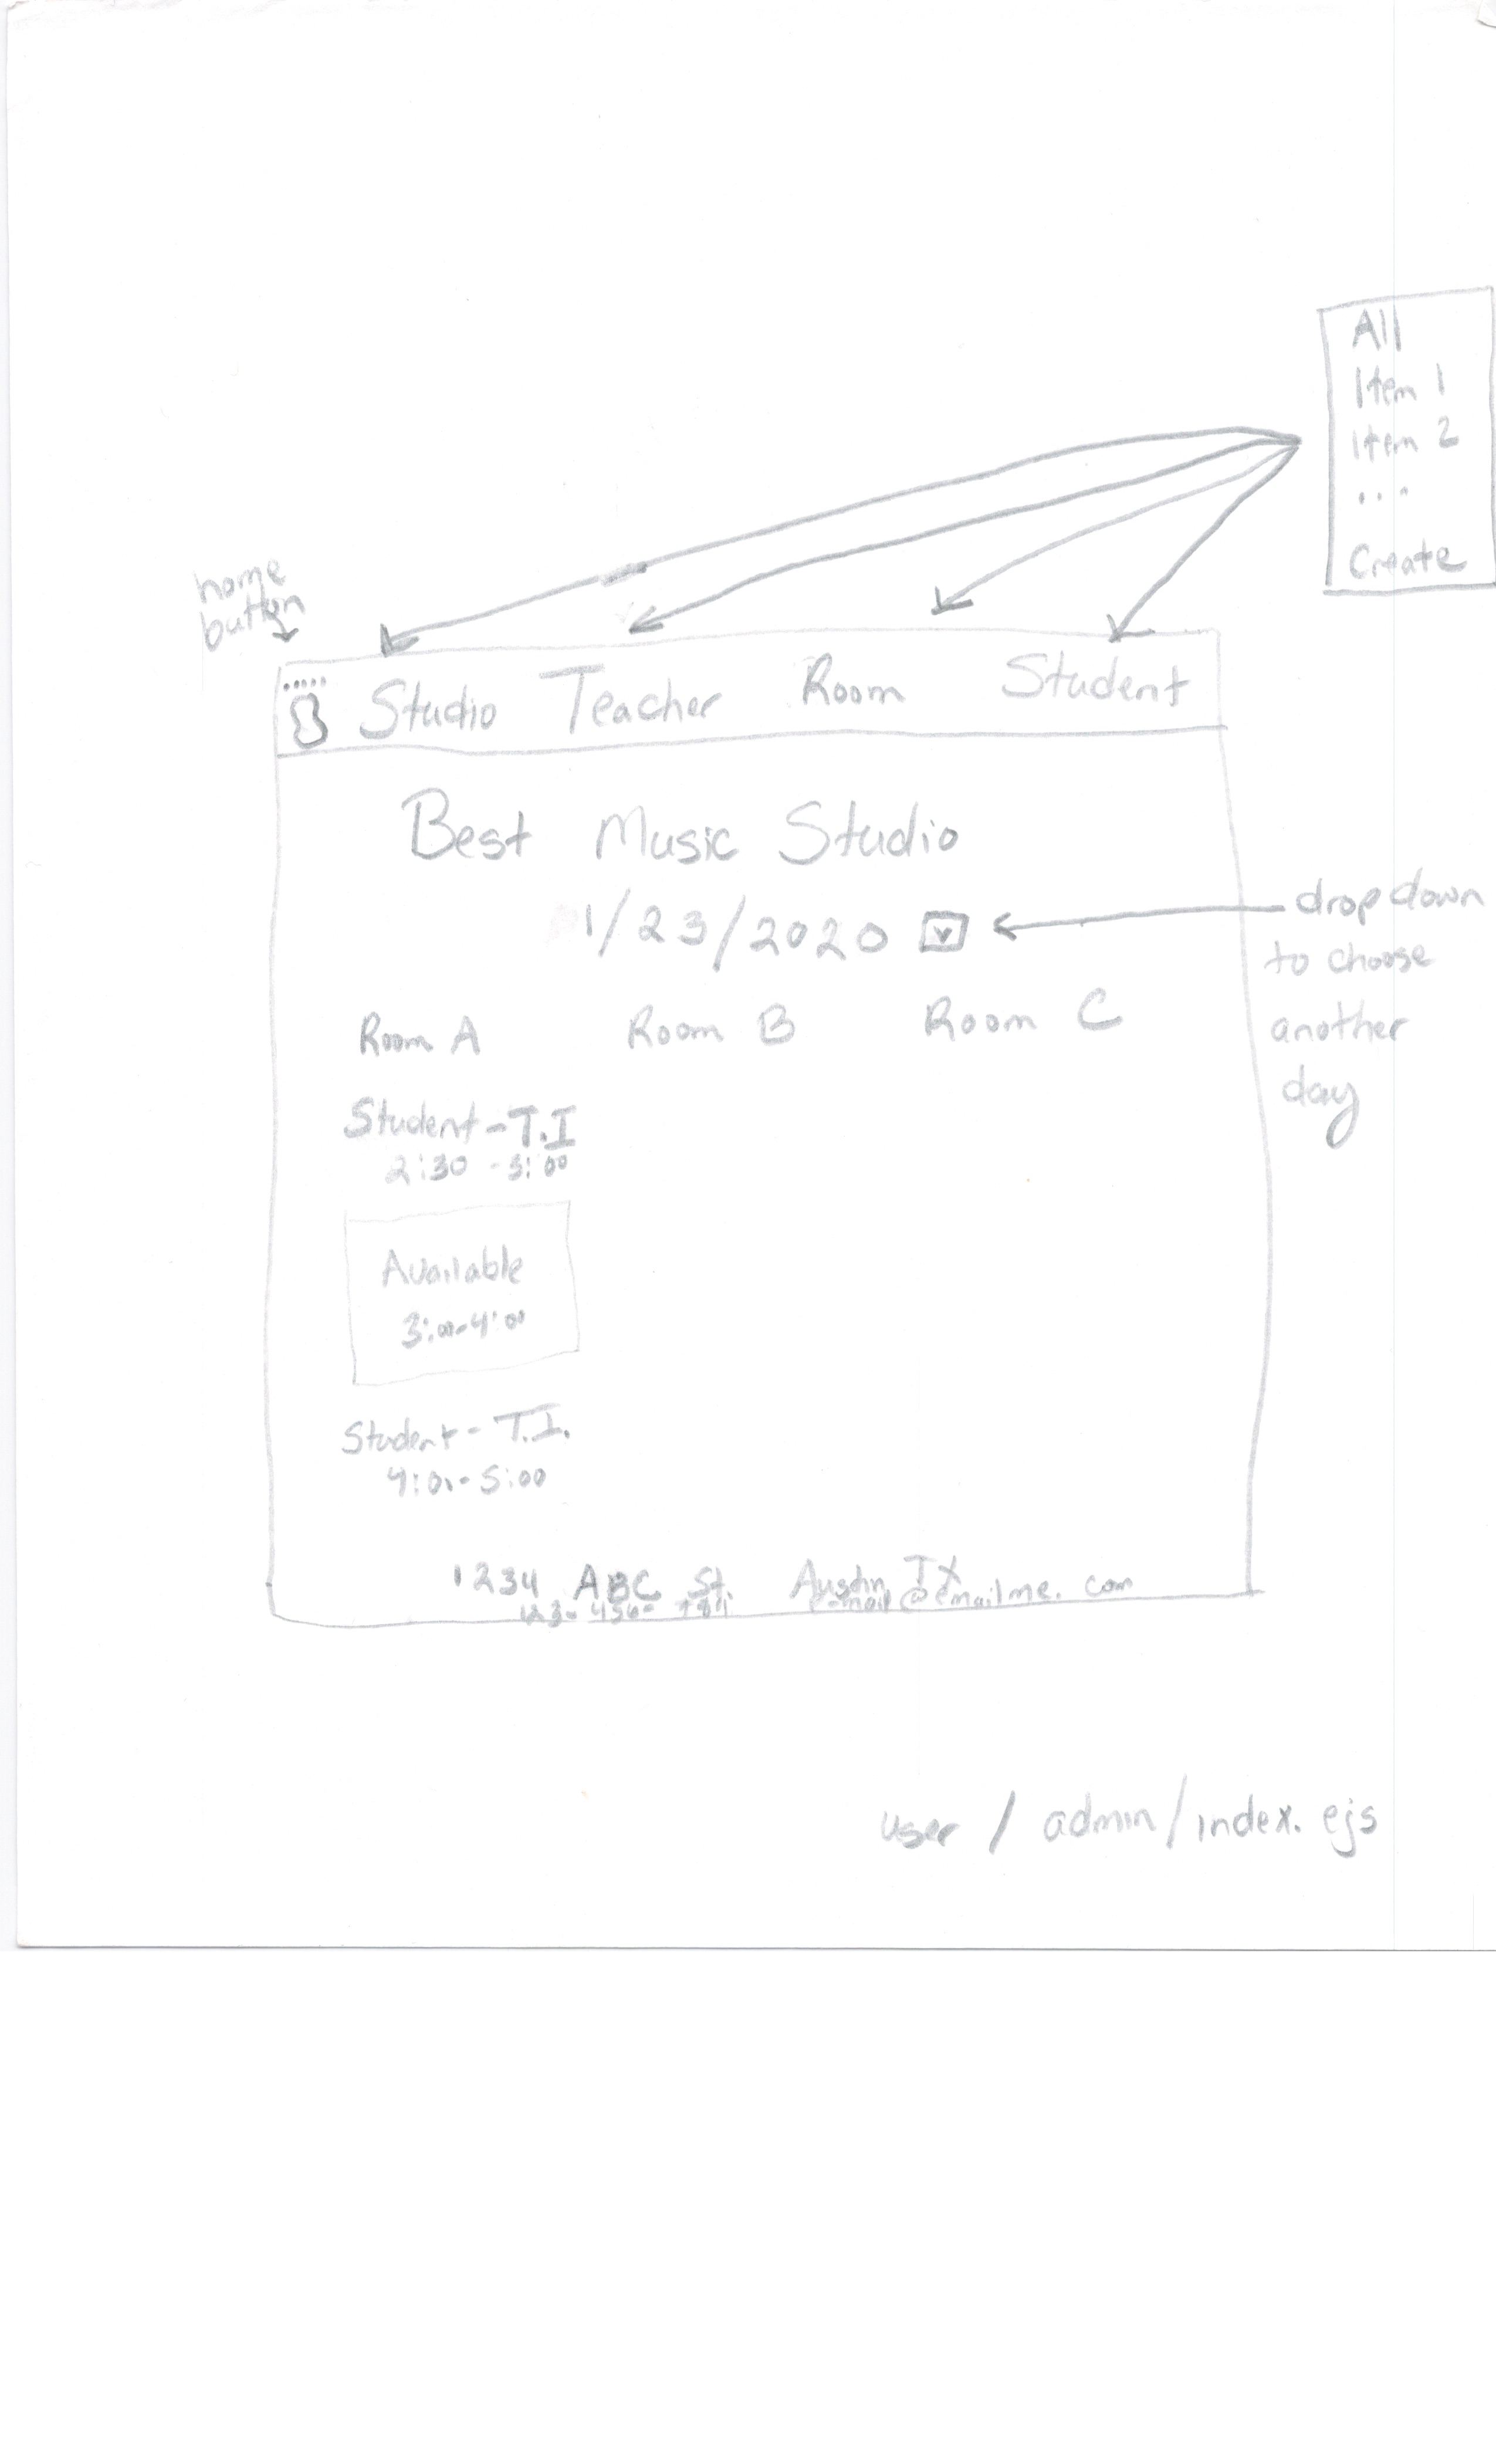 All
Item 1
Item 2
...
Create
home
button
Studio Teacher Room Student
Best Music Studio
1/23/2020
dropdown
to choose
another
day
Room A Room B Room C
Student - T.I
2:30 - 3:00
Available
3:00-4:00
Student - T.I.
4:00 - 5:00
1234 ABC St. Austin, TX
123-456-7891 e-mail@emailme.com
user / admin/index.ejs